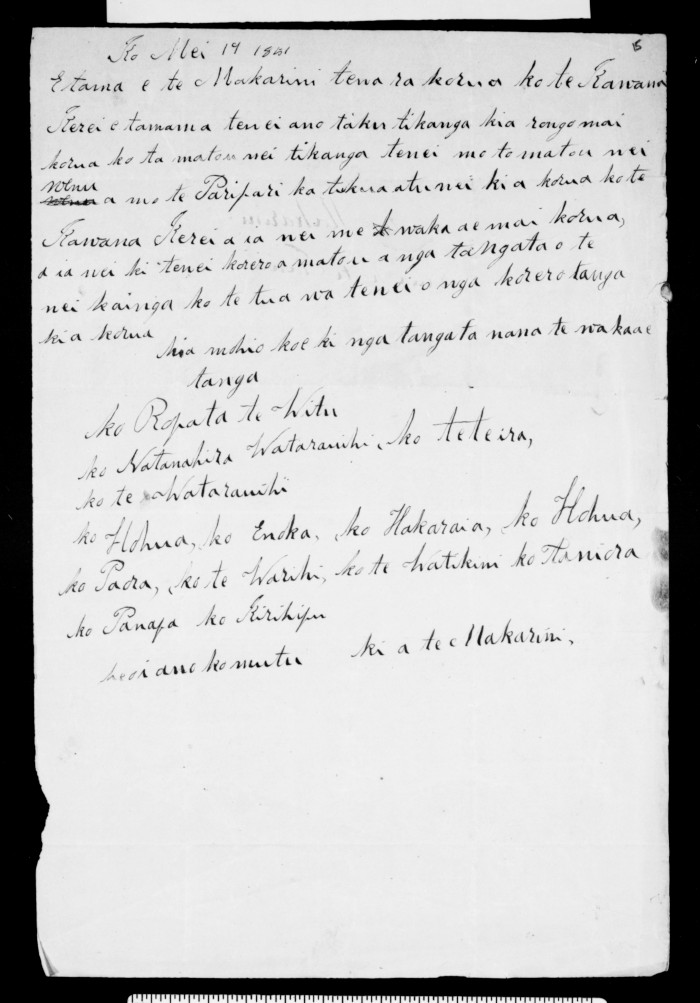 Ko Mei 14 1851
E tama e te Makarini tena ra korua ko te Kawana
Kerei e tamama tenei ano taku tikanga kia rongo mai
korua ko ta matou nei tikanga tenei mo to matou nei
wenu
a mo te Paripari ka tukua atu nei ki a korua ko te
Kawana Kerei a ia nei me wakaae mai korua,
a ia nei ki tenei korero a matou a nga tangata o te
nei kainga ko te tua wa tenei o nga korero tanga
ki a korua
kia mohio koe ki nga tangata nana te wakaae
tanga
ko Ropata te Witu
ko Natanahira Wataranihi, ko te teira,
ko te Wataranihi
ko Hohua, ko Enoka, ko Hakaraia, ko Hohua,
ko Paora, ko te Warihi, ko te Watikini ko Taniora
ko Panapa ko Kirihipu
heoi ano ko mutu ki a te Makarini,